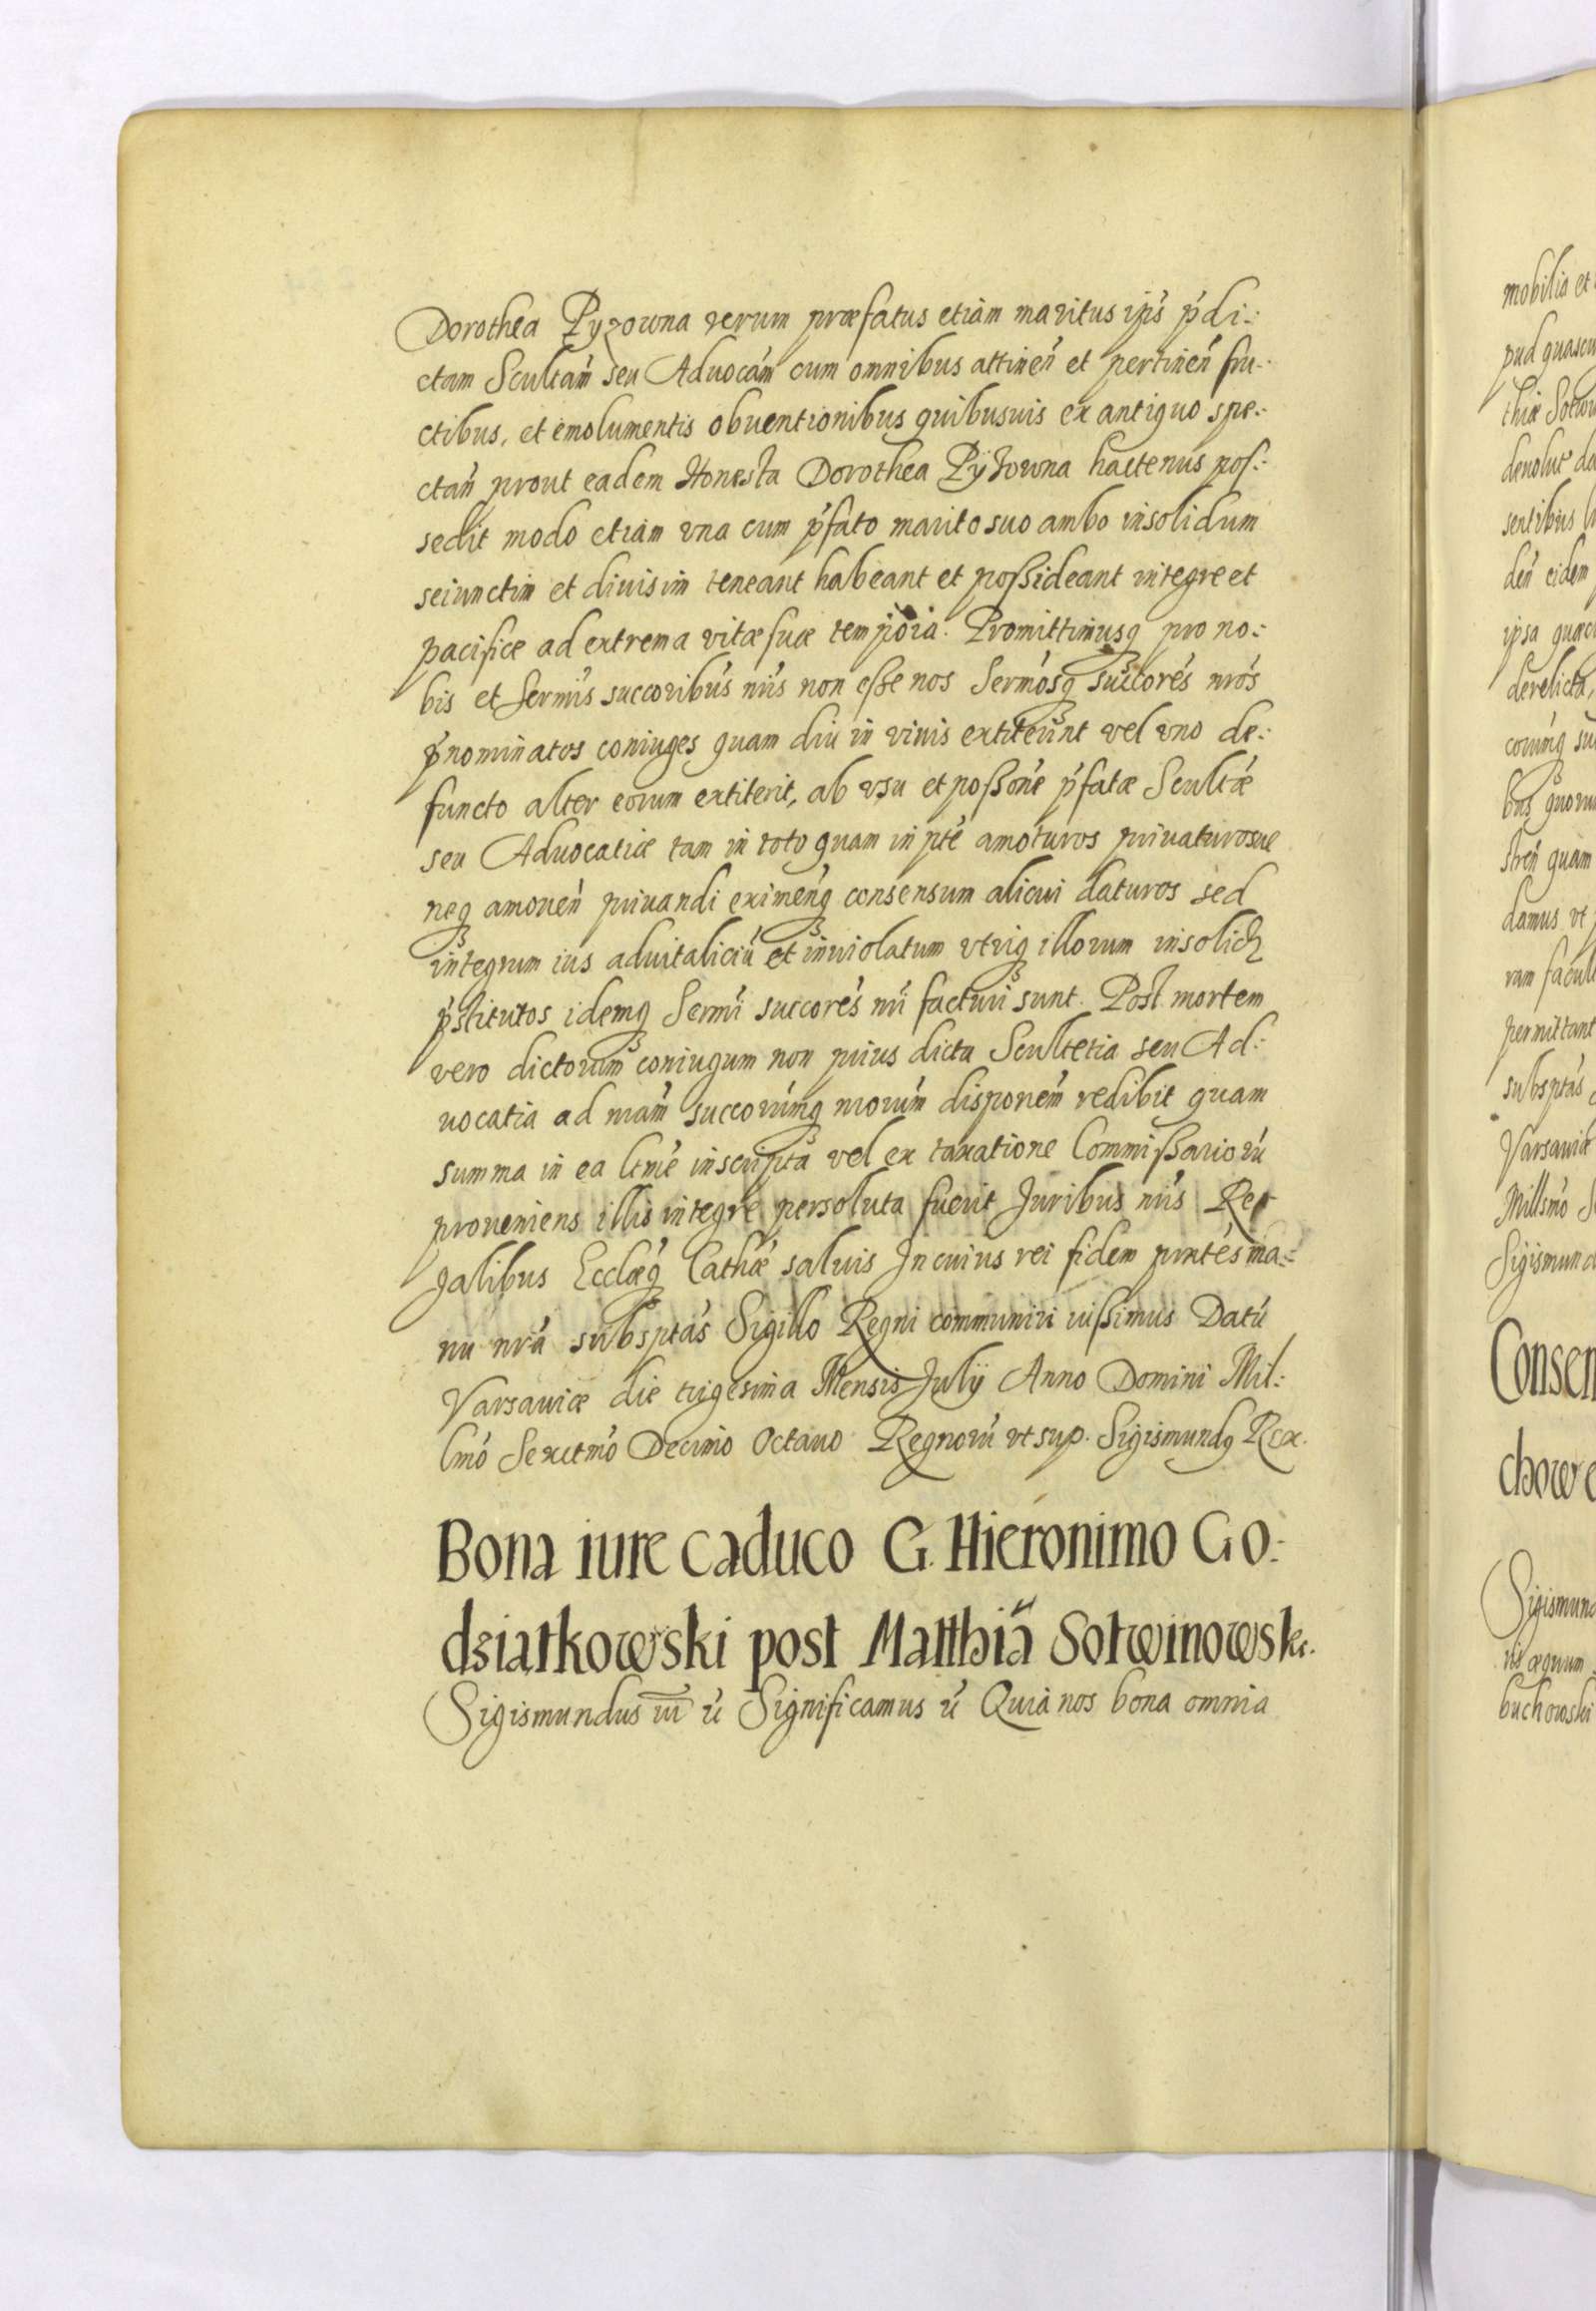 Dorothea Pyzowna verum præfatus etiam maritus ips p'di-:
ctam Scultam seu Aduocam cum omnibus attinen et pertinen fru-:
ctibus, et emolumentis obuentionibus quibusuis ex antiquo spe-:
ctan prout eadem Honesta Dorothea Pyzowna hactenus pos-:
sedit modo etiam vna cum p'fato marito suo ambo insolidum
seiunctim et diuisim teneant habeant et poßideant integre et
pacifice ad extrema vitæ suæ tempora. Promittimusq pro no-:
bis et Sermis succoribus nris non eße nos Sermosq succores nros
p'nominatos coniuges quam diu in viuis extiterint vel vno de-:
functo alter eorum extiterit, ab vsu et poßone p'fatæ Scultæ
seu Aduocatiæ tam in toto quam in pte amoturos priuaturosue
neq amouen priuandi eximenq consensum alicui daturos sed
integrum ius aduitaliciu et inuiolatum vtriq illorum insolid
p'stitutos idemq Sermi succores nri facturi sunt. Post mortem
vero dictorum coniugum non prius dicta Scultetia seu Ad-:
uocatia ad nram succorumq nrorum disponem redibit quam
summa in ea ltme inscripta vel ex taxatione Commißarioru
proueniens illis integre persoluta fuerit Juribus nris Re-
galibus Ecclæq Cathæ saluis In cuius rei fidem pntes ma-:
nu nra subsptas Sigillo Regni communiri iußimus Datu
Varsauiæ die trigesima Mensis July Anno Domini Mil-:
lmo Sexctmo Decimo Octauo Regnoru vt sup. Sigismundq Rex.
Bona iure caduco G. Hieronimo Go-:
dziatkowski post Matthia Sotwinowski.
Sigismundus III ű Significamus ű Quia nos bona omnia
mobilia et
pud quascu
thiæ Sotwi
deuolut
sentibus
den eidem
ipsa
derelicta,
corumq su
bus quoru
stren quam
damus vt
ram facult
permittant
subsptas
Varsauiæ
Millsmo
Sigismund
Consen
chowe
Sigismund
ris æquum
buchowski